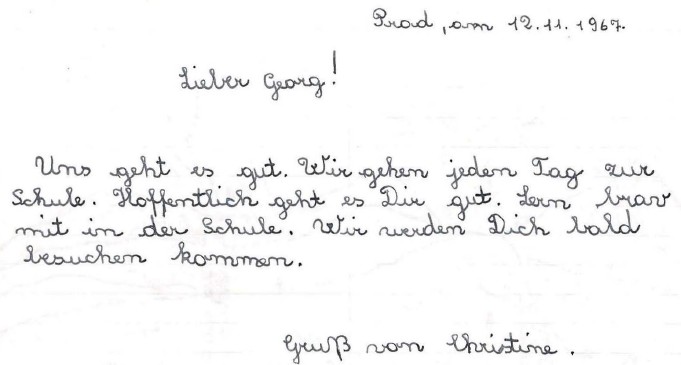 Prad, am 12.11.1967.
Lieber Georg!
Uns geht es gut. Wir gehen jeden Tag zur
Schule. Hoffentlich geht es Dir gut. Lern brav
mit in der Schule. Wir werden Dich bald
besuchen kommen.
Gruß von Christine.